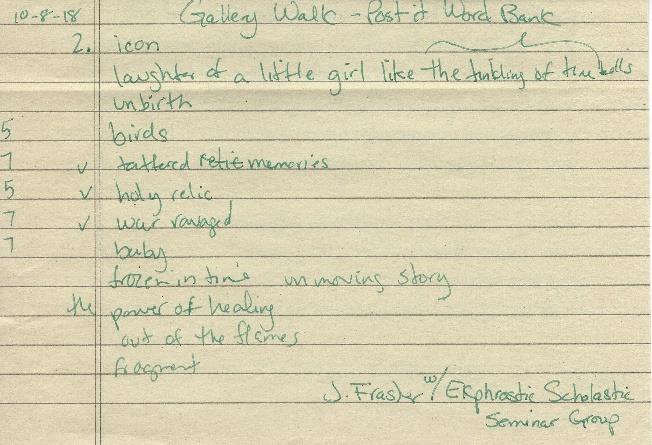 10-8-18 Gallery Walk - Post it Word Bank
2. icon
laughter of a little girl like the tinkling of bells
unbirth
5 birds
7 ✓ tattered relic memories
5 ✓ holy relic
7 ✓ war ravaged
7 baby
frozen in time unmoving story
the power of healing
out of the flames
fragment
J. Frasher w/ Ekphrastic Scholastic
Seminar Group